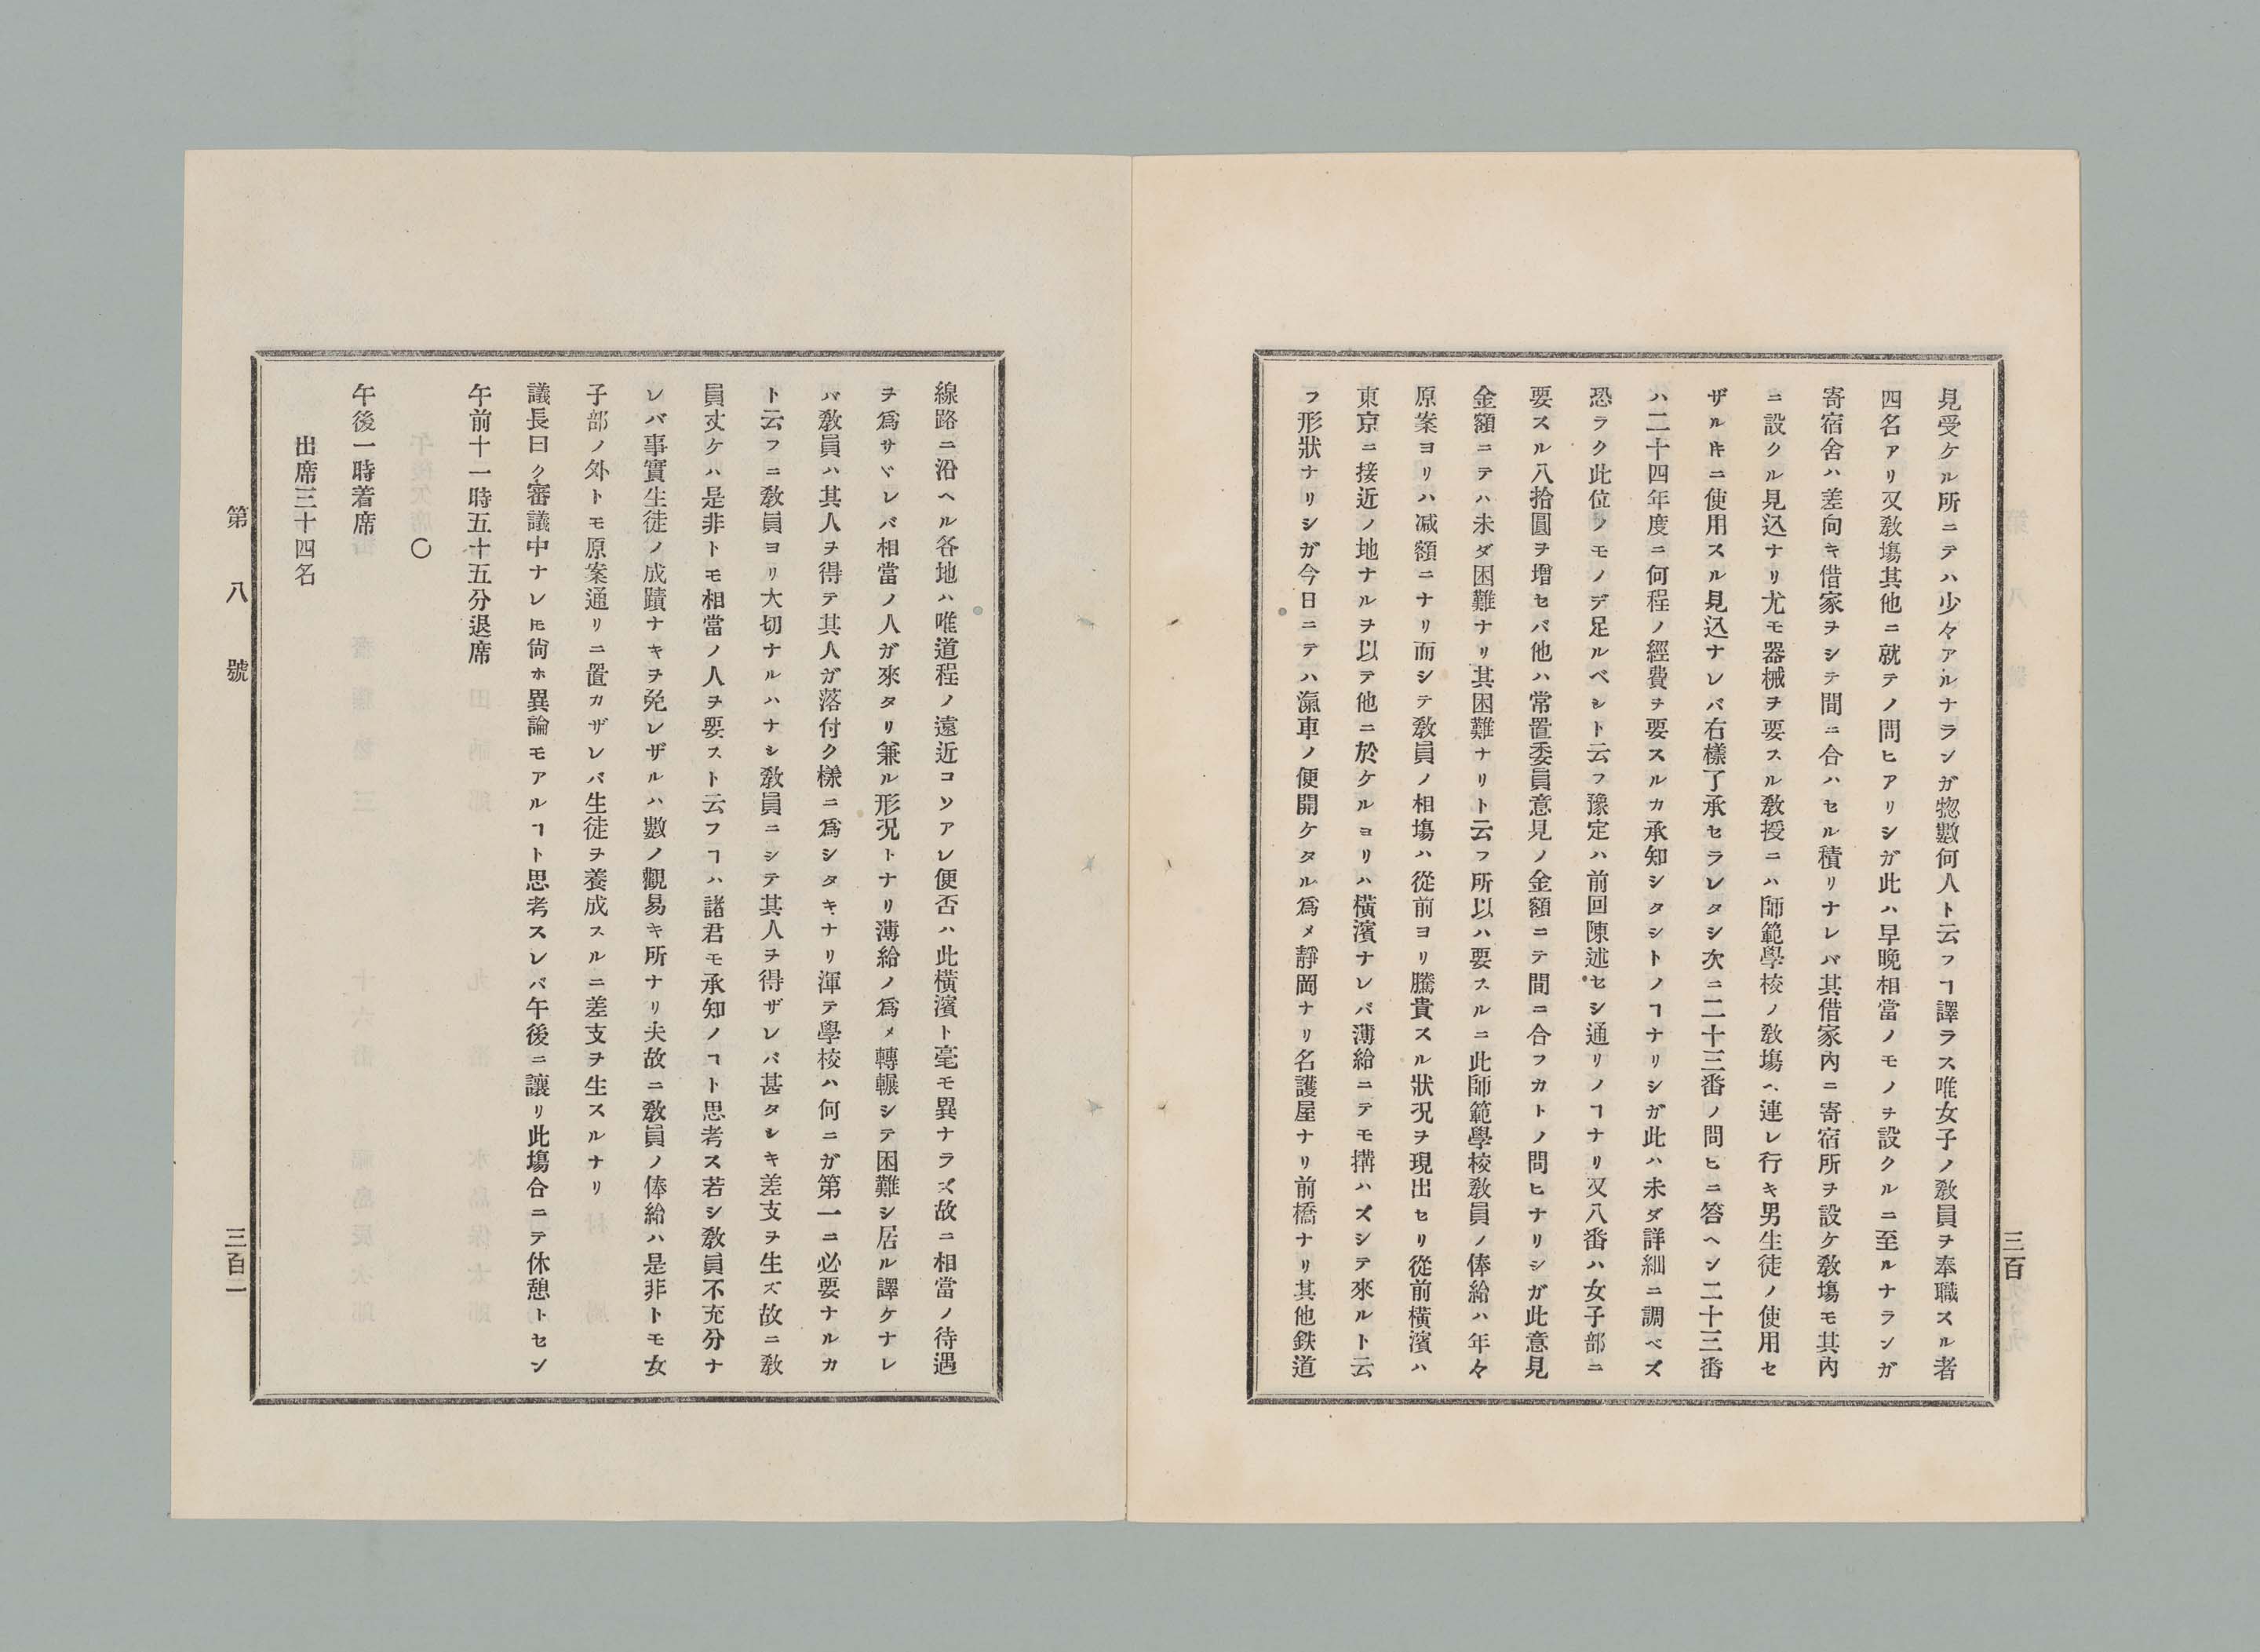 見受ケル所ニテハ少々アルナランガ惣數何人ト云フヿ譯ラス唯女子ノ敎員ヲ奉職スル者
四名アリ又敎塲其他ニ就テノ問ヒアリシガ此ハ早晩相當ノモノヲ設クルニ至ルナランガ
寄宿舍ハ差向キ借家ヲシテ間ニ合ハセル積リナレバ其借家內ニ寄宿所ヲ設ケ敎塲モ其內
ニ設クル見込ナリ尤モ器械ヲ要スル敎授ニハ師範學校ノ敎塲ヘ連レ行キ男生徒ノ使用セ
ザル𪜈ニ使用スル見込ナレバ右樣了承セラレタシ次ニ二十三番ノ問ヒニ答ヘン二十三番
ハ二十四年度ニ何程ノ經費ヲ要スルカ承知シタシトノヿナリシガ此ハ未ダ詳細ニ調ベズ
恐ラク此位ノモノデ足ルベシト云フ豫定ハ前回陳述セシ通リノヿナリ又八番ハ女子部ニ
要スル八拾圓ヲ增セバ他ハ常置委員意見ノ金額ニテ間ニ合フカトノ問ヒナリシガ此意見
金額ニテハ未ダ困難ナリ其困難ナリト云フ所以ハ要スルニ此師範學校敎員ノ俸給ハ年々
原案ヨリハ减額ニナリ而シテ敎員ノ相塲ハ從前ヨリ騰貴スル狀況ヲ現出セリ從前橫濱ハ
東京ニ接近ノ地ナルヲ以テ他ニ於ケルヨリハ橫濱ナレバ薄給ニテモ搆ハズシテ來ルト云
フ形狀ナリシガ今日ニテハ滊車ノ便開ケタル爲メ靜岡ナリ名護屋ナリ前橋ナリ其他鉄道
三百
線路ニ沿ヘル各地ハ唯道程ノ遠近コソアレ便否ハ此橫濱ト毫モ異ナラズ故ニ相當ノ待遇
ヲ爲サヾレバ相當ノ人ガ來タリ兼ル形況トナリ薄給ノ爲メ轉輾シテ困難シ居ル譯ケナレ
バ敎員ハ其人ヲ得テ其人ガ落付ク樣ニ爲シタキナリ渾テ學校ハ何ニガ第一ニ必要ナルカ
ト云フニ敎員ヨリ大切ナルハナシ敎員ニシテ其人ヲ得ザレバ甚タシキ差支ヲ生ズ故ニ敎
員丈ケハ是非トモ相當ノ人ヲ要スト云フヿハ諸君モ承知ノヿト思考ス若シ敎員不充分ナ
レバ事實生徒ノ成蹟ナキヲ免レザルハ數ノ觀易キ所ナリ夫故ニ敎員ノ俸給ハ是非トモ女
子部ノ外トモ原案通リニ置カザレバ生徒ヲ養成スルニ差支ヲ生スルナリ
議長曰ク審議中ナレ𪜈尙ホ異論モアルヿト思考スレバ午後ニ讓リ此塲合ニテ休憩トセン
午前十一時五十五分退席
〇
午後一時着席
出席三十四名
第八號
三百二